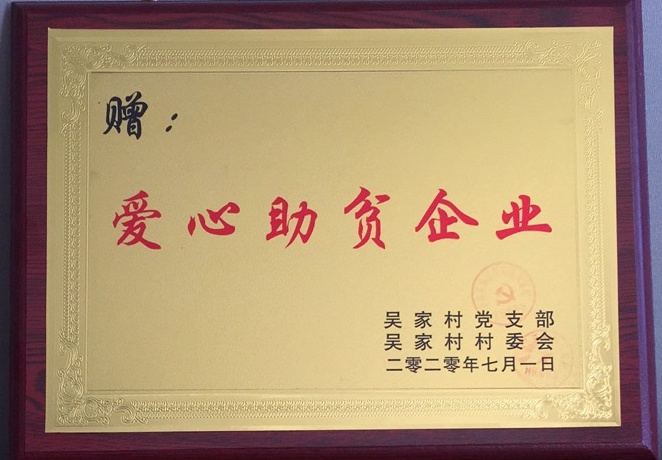 赠：
爱心助贫企业
吴家村党支部
吴家村村委会
二零二零年七月一日